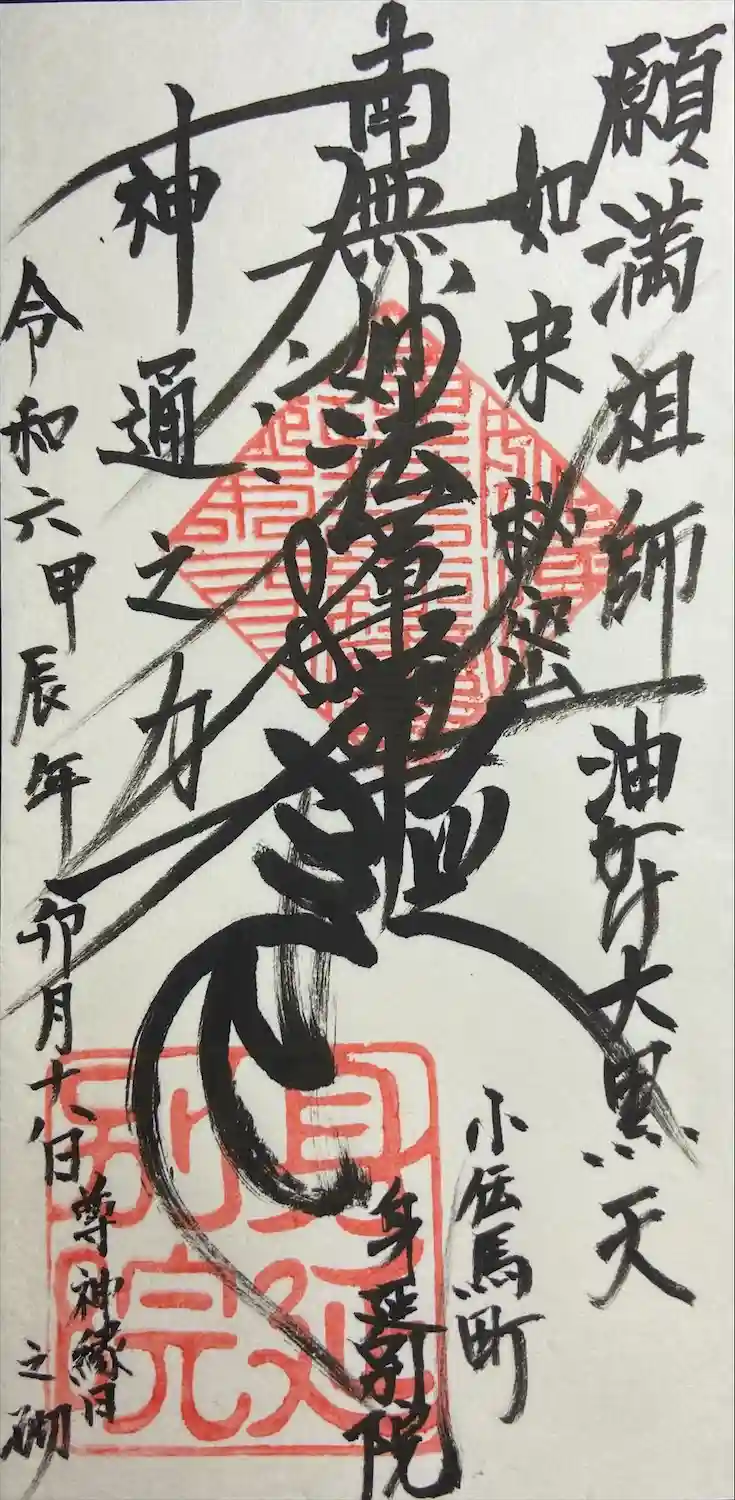 願満祖師 油かけ大黒天
如来秘密
小伝馬町
南無妙法蓮華経
身延別院
神通之力
尊神縁日
之砌
令和六甲辰年 卯月十八日
身延別院